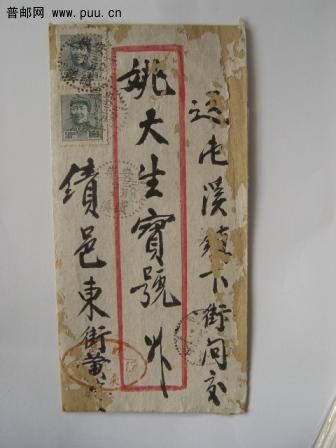 普邮网 www.puu.cn
送屯溪鎮下街间交
姚大生寶號升
績邑東街黄